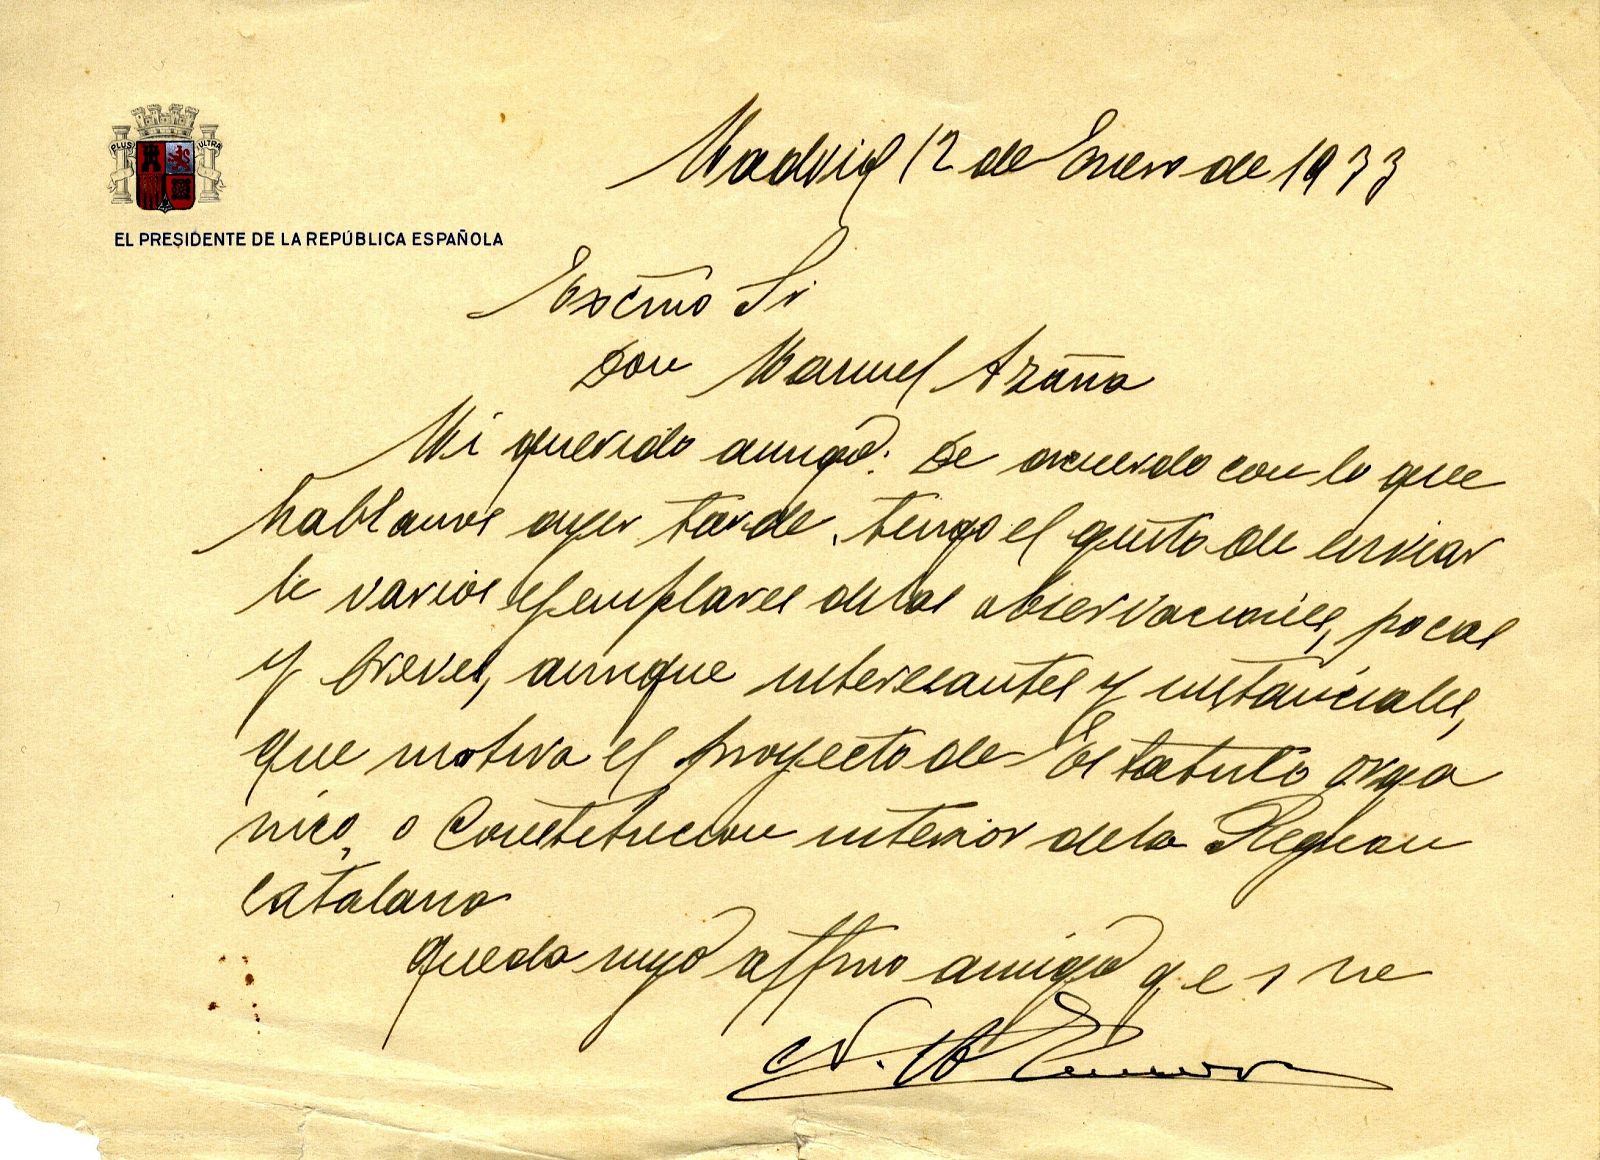 PLUS ULTRA
EL PRESIDENTE DE LA REPÚBLICA ESPAÑOLA
Madrid 12 de Enero de 1933
Excmo Sr
Don Manuel Azaña
Mi querido amigo: De acuerdo con lo que
hablamos ayer tarde, tengo el gusto de enviar
le varios ejemplares de las observaciones, pocas
y breves, aunque interesantes y sustanciales,
que motiva el proyecto de Estatuto orgá
nico, o Constitucion interior de la Region
catalana
queda suyo affmo amigo q e s m
N. A Zamora